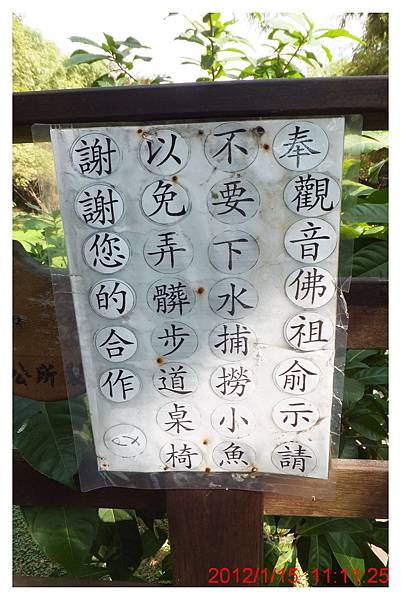 奉觀音佛祖俞示請
不要下水捕撈小魚
以免弄髒步道桌椅
謝謝您的合作
公所
2012/1/15 11:11:25